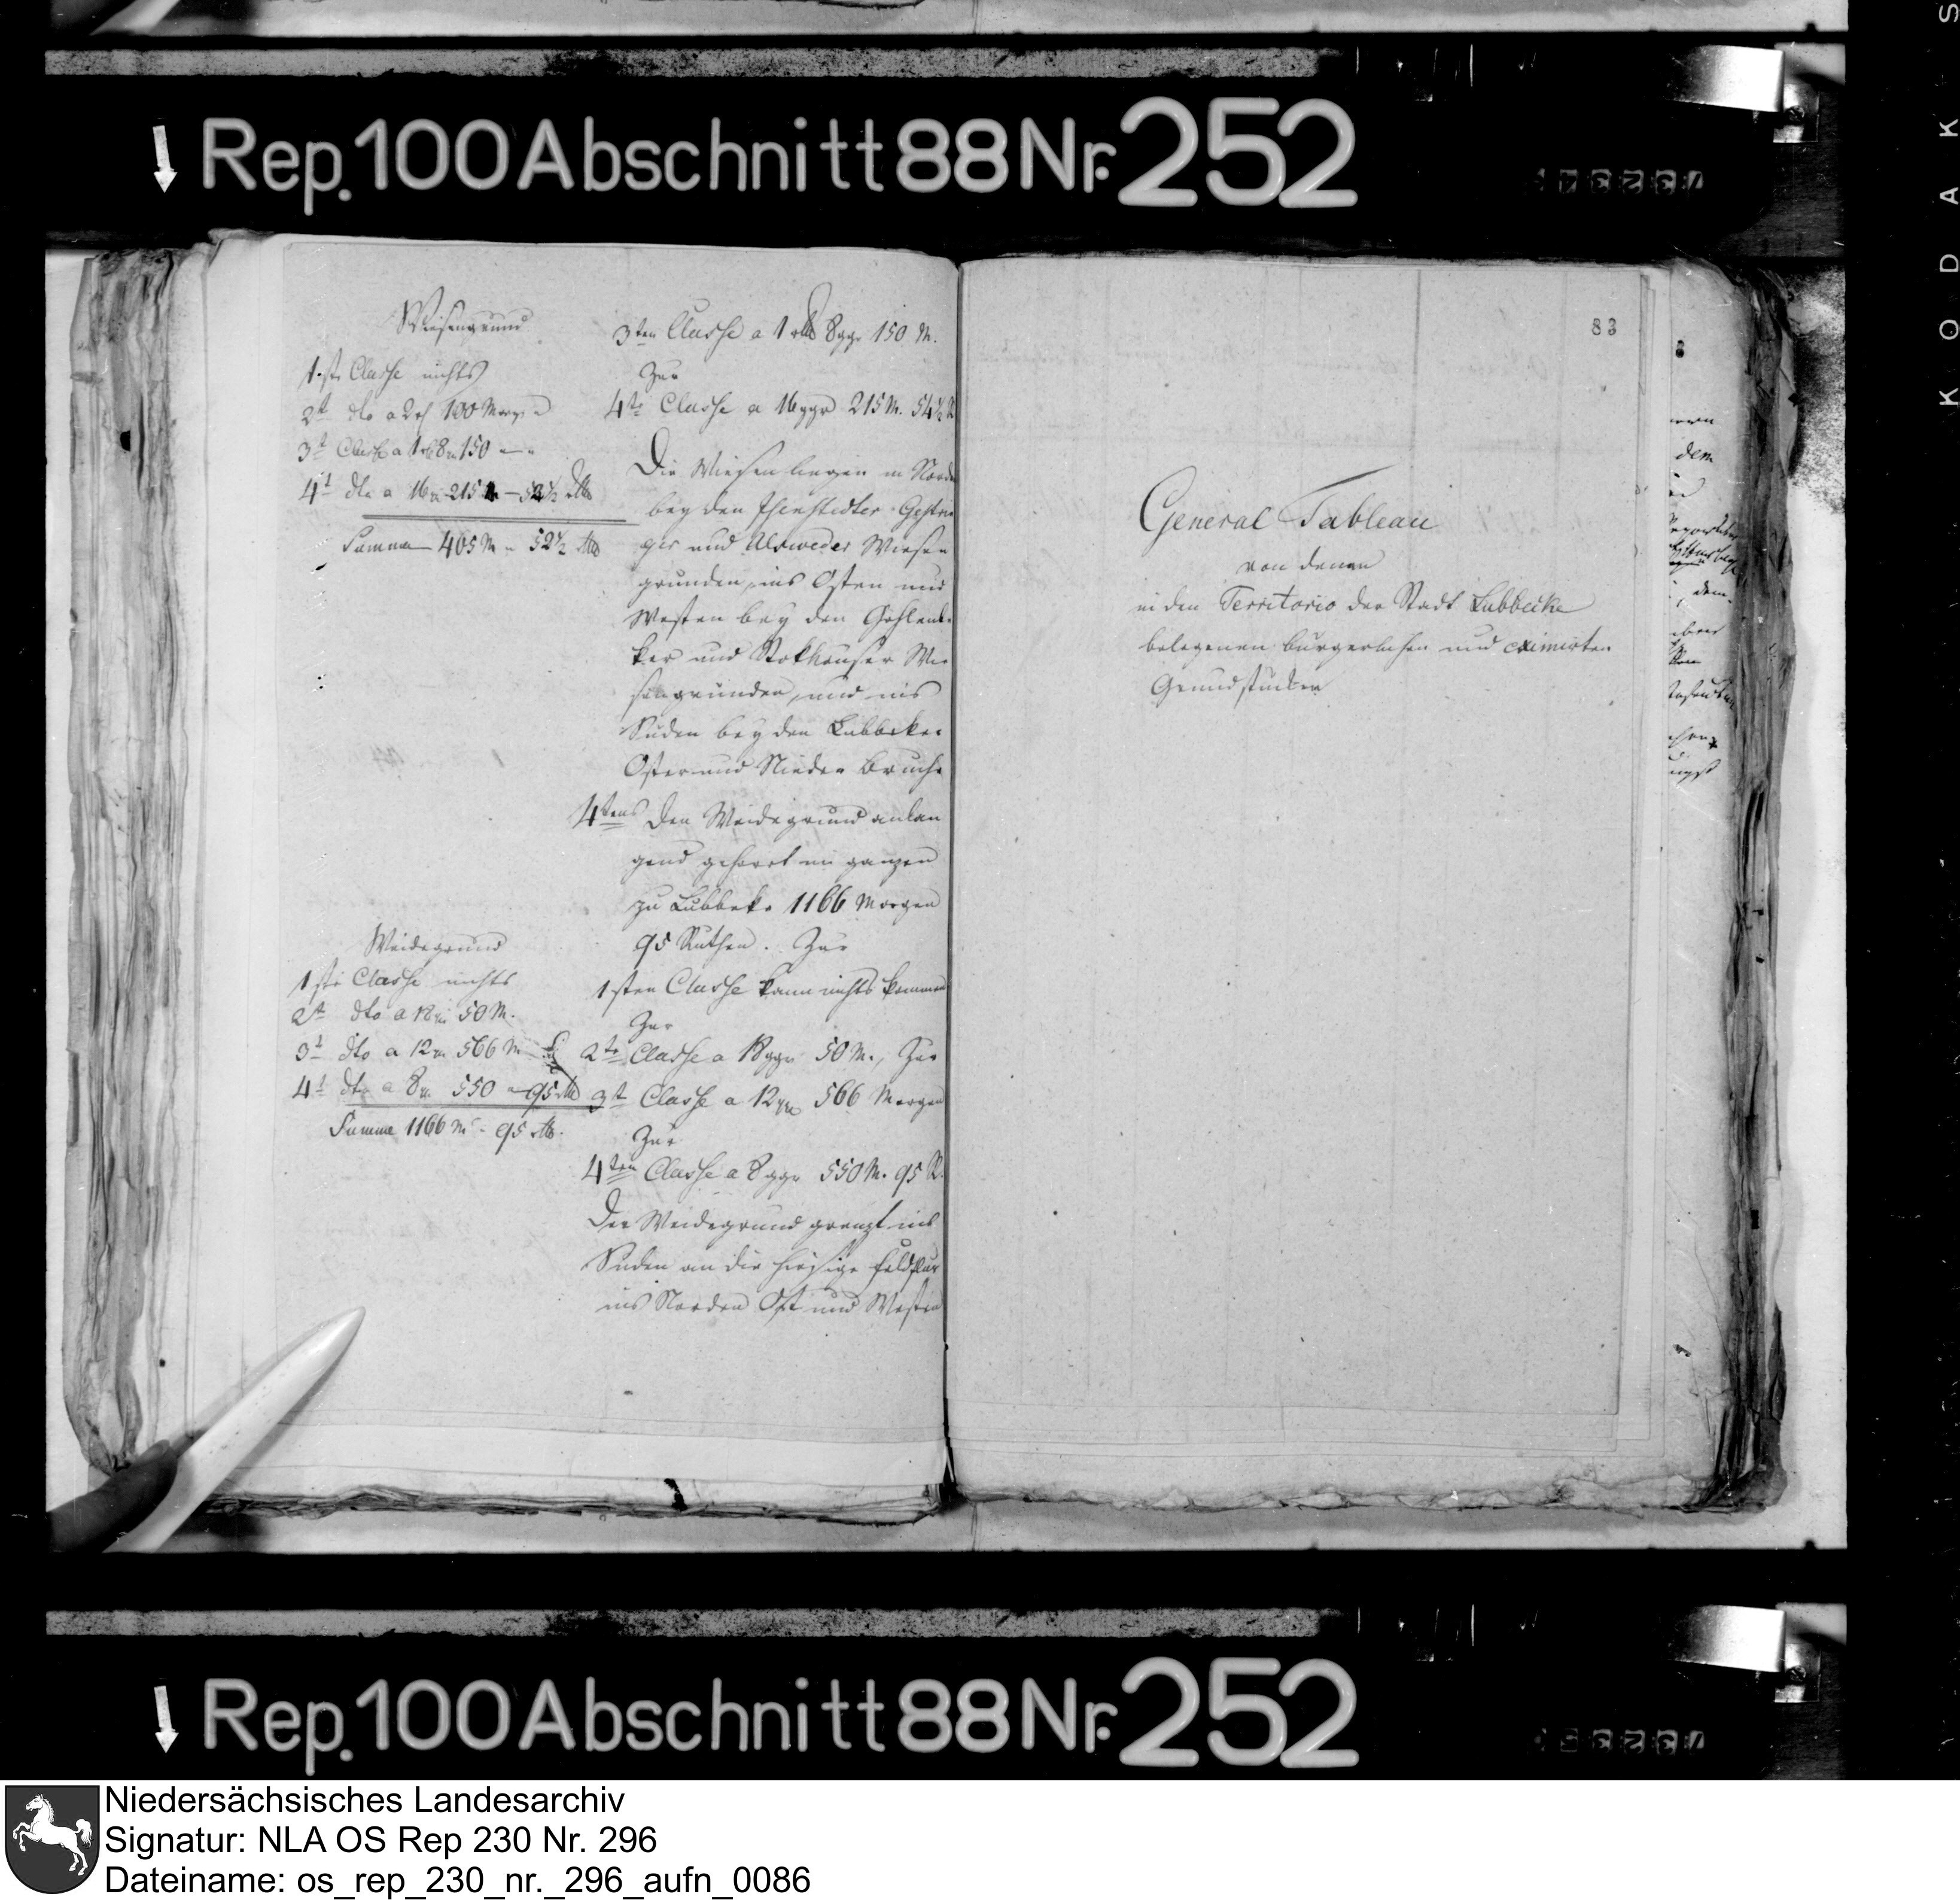 Rep. 100 Abschnitt 88 Nr. 252
Wiesengrund
1ste Classe nichts
2t dto a 2 rh 100 Morgen
3t Classe a 1 rh 8 gr 150
4t dto a 16 gr 215 M — 52½ Rth
Summa 465 M — 52½ Rth
Weidegrund
1ste Classe nichts
2t dto a 18 gr 50 M.
3t dto a 12 gr 566 M
4t dto a 8 gr 550 — 95 Rth
Summa 1166 M — 95 Rth.
3ten Classe a 1 rth 8 ggr 150 M.
Zur
4te Classe a 16 ggr 215 M. 54½ R
Die Wiesen liegen in Norden
bey den Isenstedter Gestrin
ger und Alsweder Wiesen
grunden, ins Osten und
Westen bey den Gehlenbe
ker und Stokhauser Wie
sengründen, und ins
Süden bey den Lubbeker
Oster und Nieder Bruche
4tens Den Weidegrund anlan
gend gehoert im ganzen
zu Lübbeke 1166 Morgen
95 Ruthen. Zur
1sten Classe kann nichts kommen
Zur
2te Classe a 18 ggr 50 M., Zur
3t Classe a 12 ggr 566 Morgen
Zur
4ten Classe a 8 ggr 550 M. 95 R.
Der Weidegrund grenzt ins
Süden an die hiesige Feldflur
ins Norden Ost und Westen
83
General Tableau
von denen
in den Territorio der Stadt Lubbecke
belegenen burgerlichen und eximirten
Grundstücken
dem
Rep. 100 Abschnitt 88 Nr. 252
KODAK S
Niedersächsisches Landesarchiv
Signatur: NLA OS Rep 230 Nr. 296
Dateiname: os_rep_230_nr._296_aufn_0086